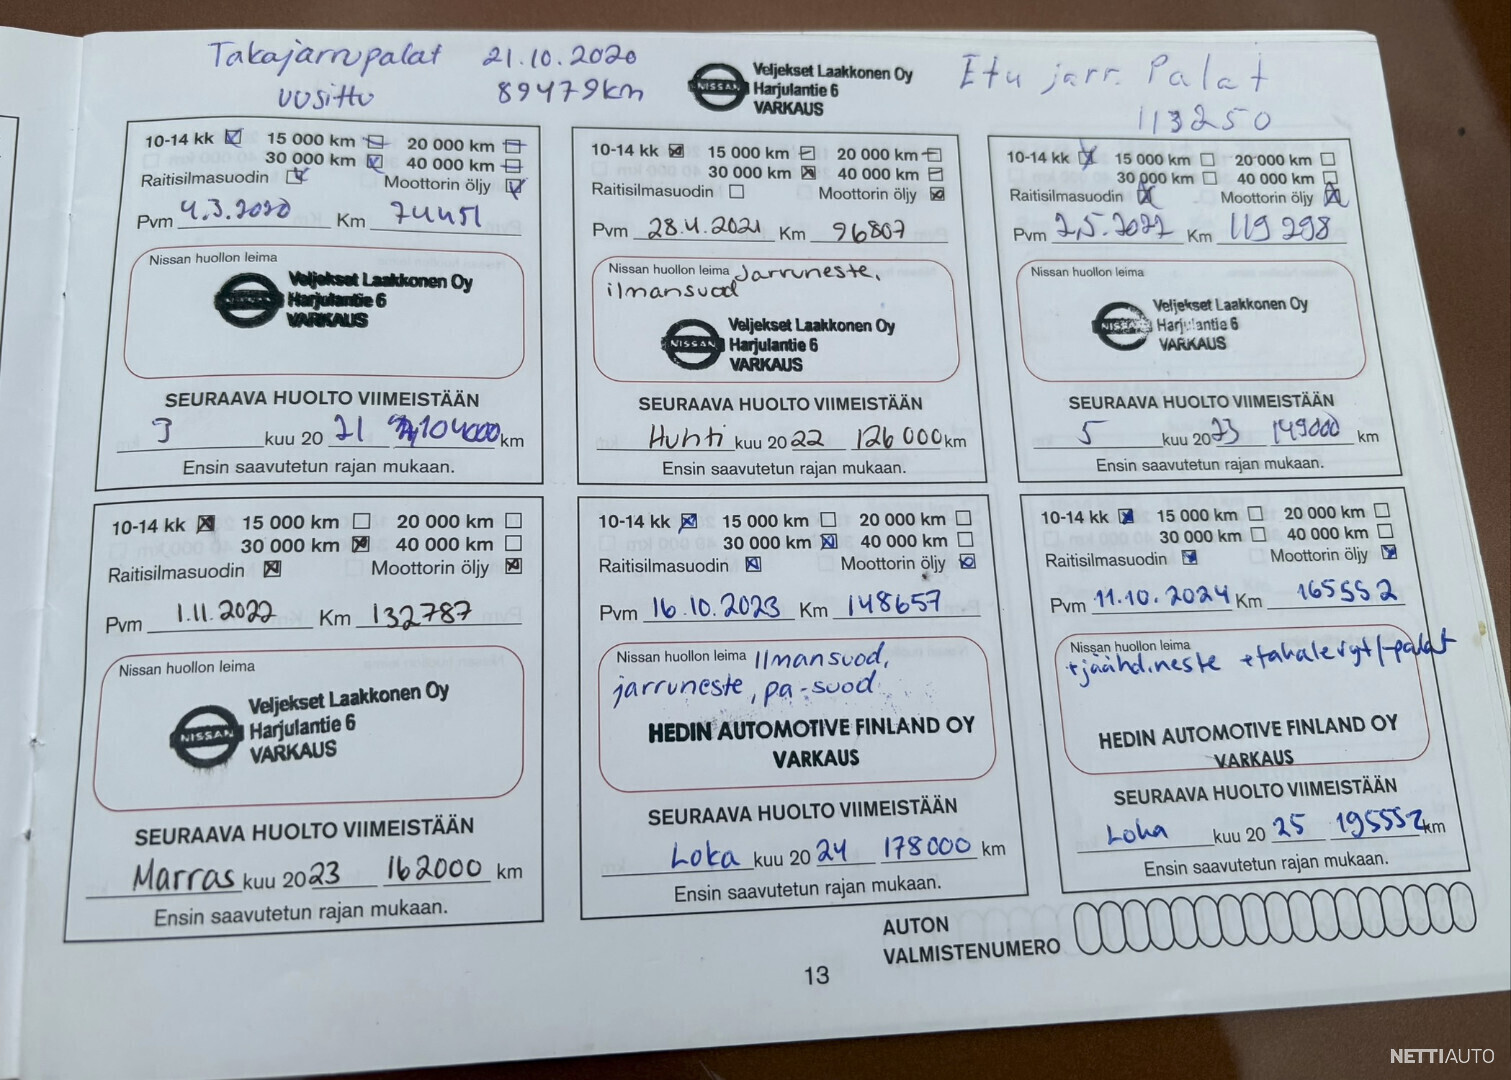 Takajarrupalat 21.10.2020
uusittu 89479km
NISSAN
Veljekset Laakkonen Oy
Harjulantie 6
VARKAUS
Etu jarr. Palat
113250
10-14 kk 15 000 km 20 000 km
30 000 km 40 000 km
Raitisilmasuodin Moottorin öljy
Pvm 4.3.2020 Km 74451
Nissan huollon leima
Veljekset Laakkonen Oy
Harjulantie 6
VARKAUS
SEURAAVA HUOLTO VIIMEISTÄÄN
3 kuu 20 21 104000 km
Ensin saavutetun rajan mukaan.
10-14 kk 15 000 km 20 000 km
30 000 km 40 000 km
Raitisilmasuodin Moottorin öljy
Pvm 28.4.2021 Km 96807
Nissan huollon leima Jarruneste,
ilmansuod
NISSAN
Veljekset Laakkonen Oy
Harjulantie 6
VARKAUS
SEURAAVA HUOLTO VIIMEISTÄÄN
Huhti kuu 20 22 126 000 km
Ensin saavutetun rajan mukaan.
10-14 kk 15 000 km 20 000 km
30 000 km 40 000 km
Raitisilmasuodin Moottorin öljy
Pvm 2.5.2022 Km 119 298
Nissan huollon leima
NISSAN
Veljekset Laakkonen Oy
Harjulantie 6
VARKAUS
SEURAAVA HUOLTO VIIMEISTÄÄN
5 kuu 20 23 149000 km
Ensin saavutetun rajan mukaan.
10-14 kk 15 000 km 20 000 km
30 000 km 40 000 km
Raitisilmasuodin Moottorin öljy
Pvm 1.11.2022 Km 132787
Nissan huollon leima
NISSAN
Veljekset Laakkonen Oy
Harjulantie 6
VARKAUS
SEURAAVA HUOLTO VIIMEISTÄÄN
Marras kuu 20 23 162000 km
Ensin saavutetun rajan mukaan.
10-14 kk 15 000 km 20 000 km
30 000 km 40 000 km
Raitisilmasuodin Moottorin öljy
Pvm 16.10.2023 Km 148657
Nissan huollon leima Ilmansuod,
jarruneste, pa-suod
HEDIN AUTOMOTIVE FINLAND OY
VARKAUS
SEURAAVA HUOLTO VIIMEISTÄÄN
Loka kuu 20 24 178000 km
Ensin saavutetun rajan mukaan.
10-14 kk 15 000 km 20 000 km
30 000 km 40 000 km
Raitisilmasuodin Moottorin öljy
Pvm 11.10.2024 Km 165552
Nissan huollon leima
+jäähd.neste +takalevyt/-palat
HEDIN AUTOMOTIVE FINLAND OY
VARKAUS
SEURAAVA HUOLTO VIIMEISTÄÄN
Loka kuu 20 25 195552 km
Ensin saavutetun rajan mukaan.
AUTON
VALMISTENUMERO
13
NETTIAUTO